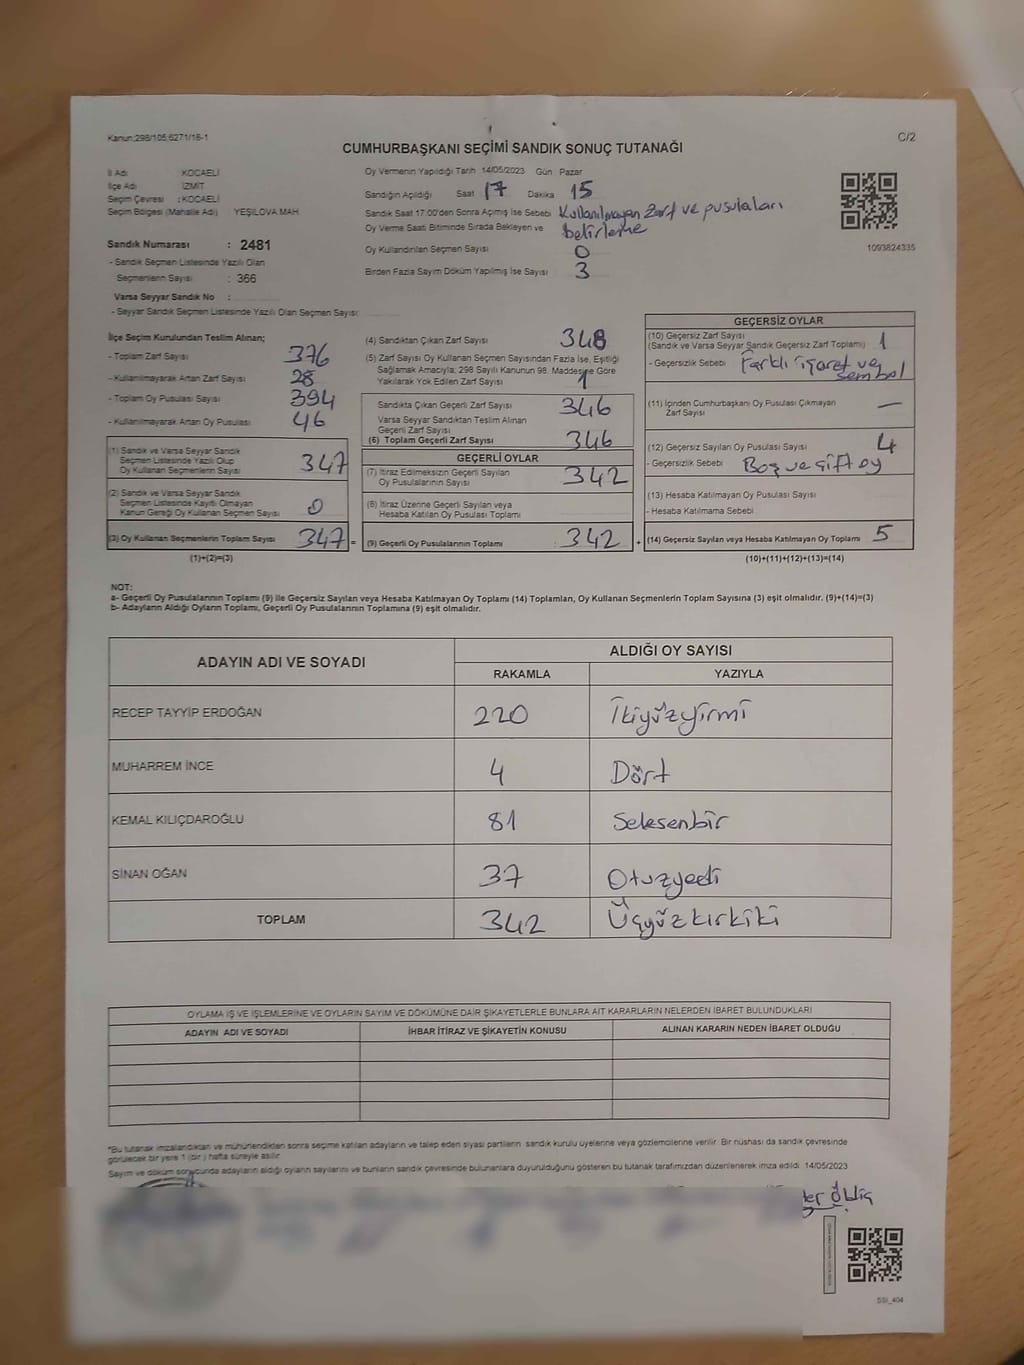 Kanun:298/105,6271/18-1
C/2
CUMHURBAŞKANI SEÇİMİ SANDIK SONUÇ TUTANAĞI
İl Adı KOCAELİ
İlçe Adı İZMİT
Seçim Çevresi : KOCAELİ
Seçim Bölgesi (Mahalle Adı) YEŞİLOVA MAH.
Sandık Numarası : 2481
- Sandık Seçmen Listesinde Yazılı Olan
Seçmenlerin Sayısı : 366
Varsa Seyyar Sandık No :
- Seyyar Sandık Seçmen Listesinde Yazılı Olan Seçmen Sayısı:
Oy Vermenin Yapıldığı Tarih 14/05/2023 Gün Pazar
Sandığın Açıldığı Saat 17 Dakika 15
Sandık Saat 17.00'den Sonra Açılmış İse Sebebi Kullanılmayan Zarf ve pusulaları
belirleme
Oy Verme Saati Bitiminde Sırada Bekleyen ve
Oy Kullandırılan Seçmen Sayısı 0
Birden Fazla Sayım Döküm Yapılmış İse Sayısı 3
1093824335
İlçe Seçim Kurulundan Teslim Alınan;
- Toplam Zarf Sayısı 376
- Kullanılmayarak Artan Zarf Sayısı 28
- Toplam Oy Pusulası Sayısı 394
- Kullanılmayarak Artan Oy Pusulası 46
(1) Sandık ve Varsa Seyyar Sandık
Seçmen Listesinde Yazılı Olup
Oy Kullanan Seçmenlerin Sayısı 347
(2) Sandık ve Varsa Seyyar Sandık
Seçmen Listesinde Kayıtlı Olmayan
Kanun Gereği Oy Kullanan Seçmen Sayısı 0
(3) Oy Kullanan Seçmenlerin Toplam Sayısı 347 =
(1)+(2)=(3)
(4) Sandıktan Çıkan Zarf Sayısı 348
(5) Zarf Sayısı Oy Kullanan Seçmen Sayısından Fazla İse, Eşitliği
Sağlamak Amacıyla; 298 Sayılı Kanunun 98. Maddesine Göre
Yakılarak Yok Edilen Zarf Sayısı 1
Sandıkta Çıkan Geçerli Zarf Sayısı 346
Varsa Seyyar Sandıktan Teslim Alınan
Geçerli Zarf Sayısı
(6) Toplam Geçerli Zarf Sayısı 346
GEÇERLİ OYLAR
(7) İtiraz Edilmeksizin Geçerli Sayılan
Oy Pusulalarının Sayısı 342
(8) İtiraz Üzerine Geçerli Sayılan veya
Hesaba Katılan Oy Pusulası Toplamı
(9) Geçerli Oy Pusulalarının Toplamı : 342 +
GEÇERSİZ OYLAR
(10) Geçersiz Zarf Sayısı
(Sandık ve Varsa Seyyar Sandık Geçersiz Zarf Toplamı) 1
- Geçersizlik Sebebi Farklı işaret ve
sembol
(11) İçinden Cumhurbaşkanı Oy Pusulası Çıkmayan
Zarf Sayısı —
(12) Geçersiz Sayılan Oy Pusulası Sayısı 4
- Geçersizlik Sebebi Boş ve çift oy
(13) Hesaba Katılmayan Oy Pusulası Sayısı
- Hesaba Katılmama Sebebi
(14) Geçersiz Sayılan veya Hesaba Katılmayan Oy Toplamı 5
(10)+(11)+(12)+(13)=(14)
NOT:
a- Geçerli Oy Pusulalarının Toplamı (9) ile Geçersiz Sayılan veya Hesaba Katılmayan Oy Toplamı (14) Toplamları, Oy Kullanan Seçmenlerin Toplam Sayısına (3) eşit olmalıdır. (9)+(14)=(3)
b- Adayların Aldığı Oyların Toplamı, Geçerli Oy Pusulalarının Toplamına (9) eşit olmalıdır.
ADAYIN ADI VE SOYADI ALDIĞI OY SAYISI
RAKAMLA YAZIYLA
RECEP TAYYİP ERDOĞAN 220 İkiyüzyirmi
MUHARREM İNCE 4 Dört
KEMAL KILIÇDAROĞLU 81 Seksenbir
SİNAN OĞAN 37 Otuzyedi
TOPLAM 342 Üçyüzkırkiki
OYLAMA İŞ VE İŞLEMLERİNE VE OYLARIN SAYIM VE DÖKÜMÜNE DAİR ŞİKAYETLERLE BUNLARA AİT KARARLARIN NELERDEN İBARET BULUNDUKLARI
ADAYIN ADI VE SOYADI İHBAR İTİRAZ VE ŞİKAYETİN KONUSU ALINAN KARARIN NEDEN İBARET OLDUĞU
*Bu tutanak imzalandıktan ve mühürlendikten sonra seçime katılan adayların ve talep eden siyasi partilerin sandık kurulu üyelerine veya gözlemcilerine verilir. Bir nüshası da sandık çevresinde
görülecek bir yere 1 (bir ) hafta süreyle asılır.
Sayım ve döküm sonucunda adayların aldığı oyların sayılarını ve bunların sandık çevresinde bulunanlara duyurulduğunu gösteren bu tutanak tarafımızdan düzenlenerek imza edildi. 14/05/2023
SSI_404